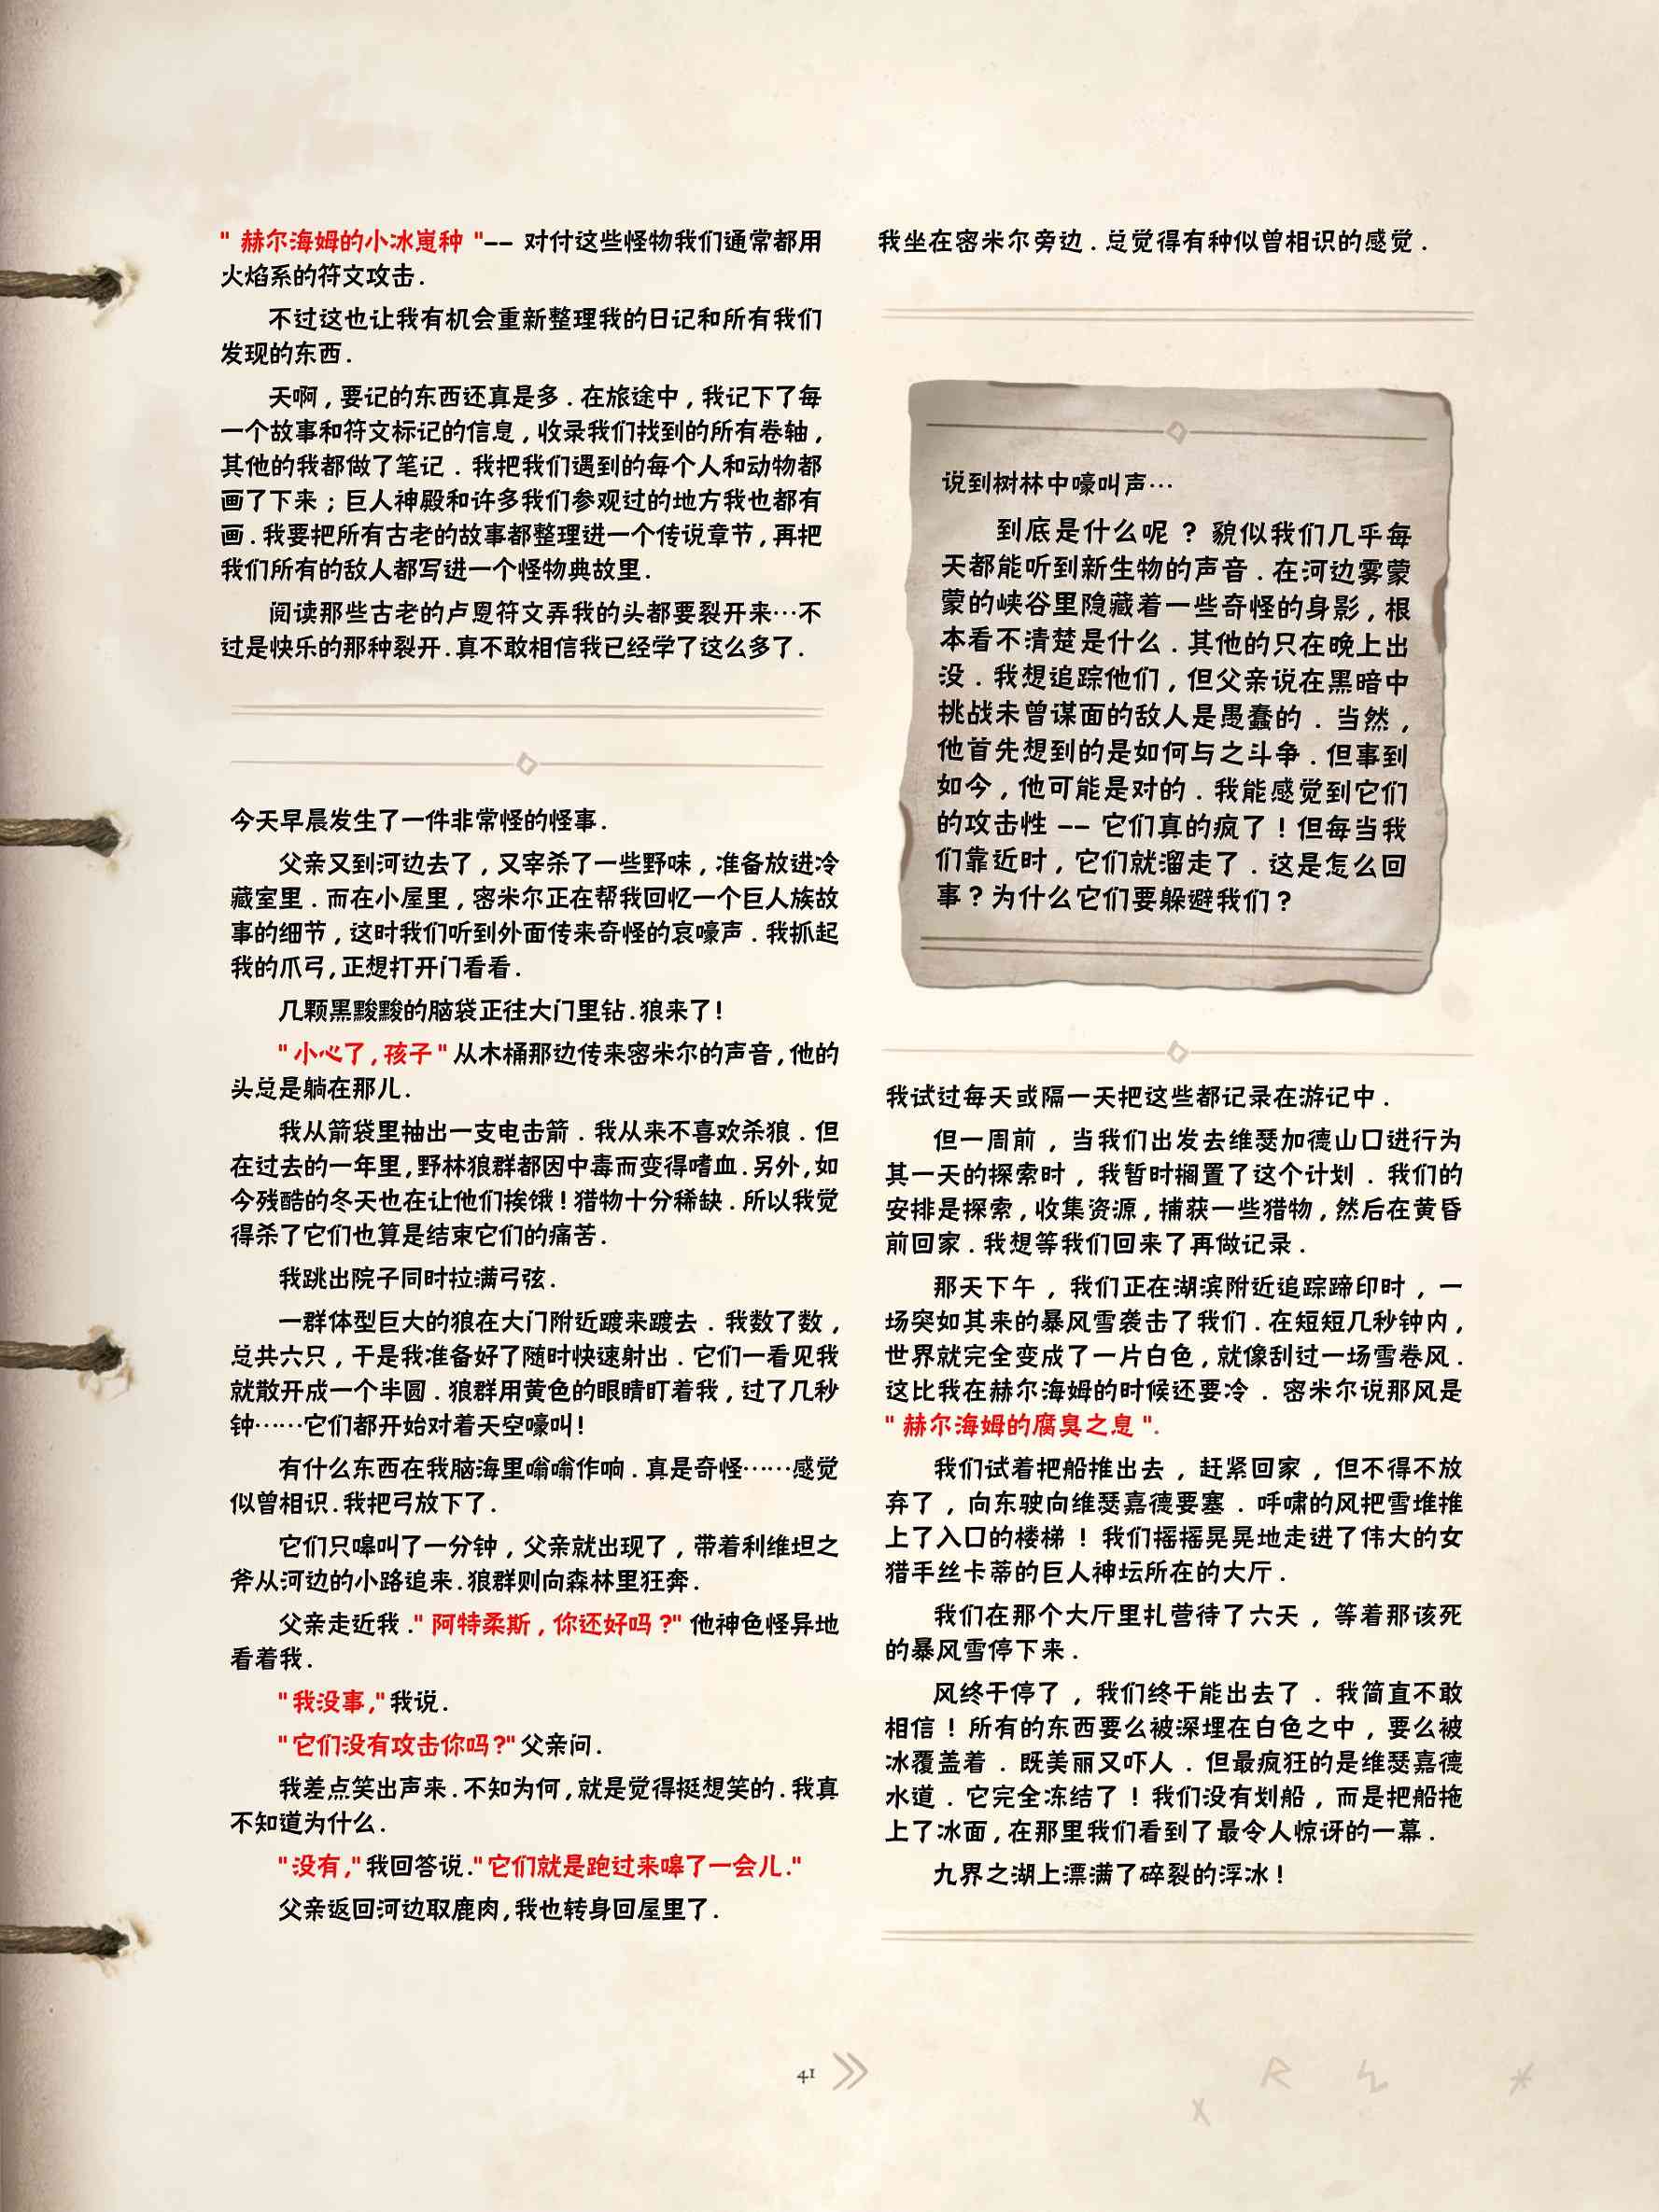 "赫尔海姆的小冰崽种"—— 对付这些怪物我们通常都用
火焰系的符文攻击.
不过这也让我有机会重新整理我的日记和所有我们
发现的东西.
天啊,要记的东西还真是多.在旅途中,我记下了每
一个故事和符文标记的信息,收录我们找到的所有卷轴,
其他的我都做了笔记.我把我们遇到的每个人和动物都
画了下来;巨人神殿和许多我们参观过的地方我也都有
画.我要把所有古老的故事都整理进一个传说章节,再把
我们所有的敌人都写进一个怪物典故里.
阅读那些古老的卢恩符文弄我的头都要裂开来…不
过是快乐的那种裂开.真不敢相信我已经学了这么多了.
今天早晨发生了一件非常怪的怪事.
父亲又到河边去了,又宰杀了一些野味,准备放进冷
藏室里.而在小屋里,密米尔正在帮我回忆一个巨人族故
事的细节,这时我们听到外面传来奇怪的哀嚎声.我抓起
我的爪弓,正想打开门看看.
几颗黑黢黢的脑袋正往大门里钻.狼来了!
"小心了,孩子"从木桶那边传来密米尔的声音,他的
头总是躺在那儿.
我从箭袋里抽出一支电击箭.我从来不喜欢杀狼.但
在过去的一年里,野林狼群都因中毒而变得嗜血.另外,如
今残酷的冬天也在让他们挨饿!猎物十分稀缺.所以我觉
得杀了它们也算是结束它们的痛苦.
我跳出院子同时拉满弓弦.
一群体型巨大的狼在大门附近踱来踱去.我数了数,
总共六只,于是我准备好了随时快速射出.它们一看见我
就散开成一个半圆.狼群用黄色的眼睛盯着我,过了几秒
钟……它们都开始对着天空嚎叫!
有什么东西在我脑海里嗡嗡作响.真是奇怪……感觉
似曾相识.我把弓放下了.
它们只嗥叫了一分钟,父亲就出现了,带着利维坦之
斧从河边的小路追来.狼群则向森林里狂奔.
父亲走近我."阿特柔斯,你还好吗?"他神色怪异地
看着我.
"我没事,"我说.
"它们没有攻击你吗?"父亲问.
我差点笑出声来.不知为何,就是觉得挺想笑的.我真
不知道为什么.
"没有,"我回答说."它们就是跑过来嗥了一会儿."
父亲返回河边取鹿肉,我也转身回屋里了.
我坐在密米尔旁边.总觉得有种似曾相识的感觉.
说到树林中嚎叫声…
到底是什么呢?貌似我们几乎每
天都能听到新生物的声音.在河边雾蒙
蒙的峡谷里隐藏着一些奇怪的身影,根
本看不清楚是什么.其他的只在晚上出
没.我想追踪他们,但父亲说在黑暗中
挑战未曾谋面的敌人是愚蠢的.当然,
他首先想到的是如何与之斗争.但事到
如今,他可能是对的.我能感觉到它们
的攻击性 —— 它们真的疯了!但每当我
们靠近时,它们就溜走了.这是怎么回
事?为什么它们要躲避我们?
我试过每天或隔一天把这些都记录在游记中.
但一周前,当我们出发去维瑟加德山口进行为
其一天的探索时,我暂时搁置了这个计划.我们的
安排是探索,收集资源,捕获一些猎物,然后在黄昏
前回家.我想等我们回来了再做记录.
那天下午,我们正在湖滨附近追踪蹄印时,一
场突如其来的暴风雪袭击了我们.在短短几秒钟内,
世界就完全变成了一片白色,就像刮过一场雪卷风.
这比我在赫尔海姆的时候还要冷.密米尔说那风是
"赫尔海姆的腐臭之息".
我们试着把船推出去,赶紧回家,但不得不放
弃了,向东驶向维瑟嘉德要塞.呼啸的风把雪堆推
上了入口的楼梯!我们摇摇晃晃地走进了伟大的女
猎手丝卡蒂的巨人神坛所在的大厅.
我们在那个大厅里扎营待了六天,等着那该死
的暴风雪停下来.
风终于停了,我们终于能出去了.我简直不敢
相信!所有的东西要么被深埋在白色之中,要么被
冰覆盖着.既美丽又吓人.但最疯狂的是维瑟嘉德
水道.它完全冻结了!我们没有划船,而是把船拖
上了冰面,在那里我们看到了最令人惊讶的一幕.
九界之湖上漂满了碎裂的浮冰!
41